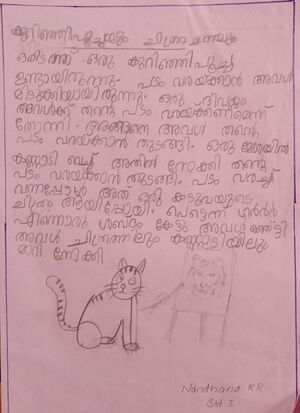 കുറിഞ്ഞിപൂച്ചയും ചിത്രരചനയും
ഒരിടത്ത് ഒരു കുറിഞ്ഞിപൂച്ച
ഉണ്ടായിരുന്നു. പടം വരയ്ക്കാൻ അവൾ
മിടുക്കിയായിരുന്നു. ഒരു ദിവസം
അവൾക്ക് തന്റെ പടം വരയ്ക്കണമെന്ന്
തോന്നി. അങ്ങനെ അവൾ തന്റെ
പടം വരയ്ക്കാൻ തുടങ്ങി. ഒരു
കണ്ണാടി വച്ച് അതിൽ നോക്കി തന്റെ
പടം വരയ്ക്കാൻ തുടങ്ങി. പടം വരച്ച്
വന്നപ്പോൾ അത് ഒരു കടുവയുടെ
ചിത്രം ആയിപ്പോയി. പെട്ടെന്ന് ഗർർർ
എന്നൊരു ശബ്ദം കേട്ടു അവൾ ഞെട്ടി
അവൾ ചിത്രത്തിലും കണ്ണാടിയിലും
മാറി നോക്കി
Nandhana K R
Std I